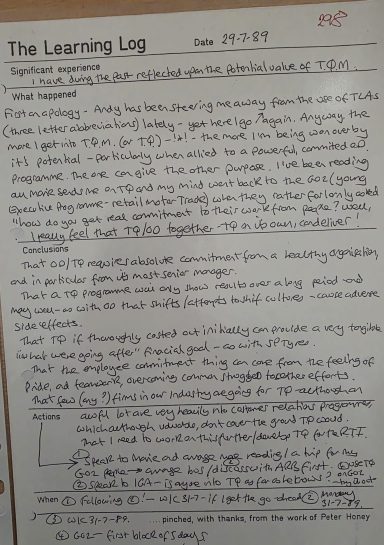 298
The Learning Log Date 29-7-89
Significant experience
I have during the past reflected upon the potential value of TQM.
What happened
First an apology - Andy has been steering me away from the use of TLAs
(three letter abbreviations) lately - yet here I go again. Anyway the
more I get into TQM. (or TQ) - the more I'm being won over by
it's potential - particularly when allied to a powerful, commited OD.
Programme. The one can give the other purpose. I've been reading
on TQ and my mind went back to the GO2 (young
Executive Programme - retail motor Trade) when they rather forlornly asked
"how do you get real commitment to their work from people? Well,
I really feel that TQ/OD together - TQ on its own, can deliver!
Conclusions
That OD/TQ requires absolute commitment from a healthy organisation,
and in particular from its most senior manager.
That a TQ programme will only show results over a long period and
may well - as with OD that shifts/attempts to shift cultures - cause adverse
side effects.
That TQ if thoroughly costed out initially can provide a very tangible
"what we're going after" financial goal - as with SP Tyres.
That the employee commitment thing can come from the feeling of
Pride, and teamwork, overcoming common struggles together efforts.
That few (any?) firms in our Industry are going for TQ - although an
awful lot are very heavily into customer relations programmes,
which although valuable, don't cover the ground TQ would.
That I need to work on this further/develop TQ for the RTI.
Actions
① Speak to Marie and arrange more reading / a trip for my
GO2 people → arrange bos/discuss with ARB first. ③ use TQ on GO2
② Speak to IGA - is agree into TQ as far as be bows? - try it out
When ① following ②! - W/C 31-7- if I get the go-ahead ② Monday
31-7-89.
③ W/C 31-7-89. ....pinched, with thanks, from the work of Peter Honey
④ GO2 - first block of 5 days